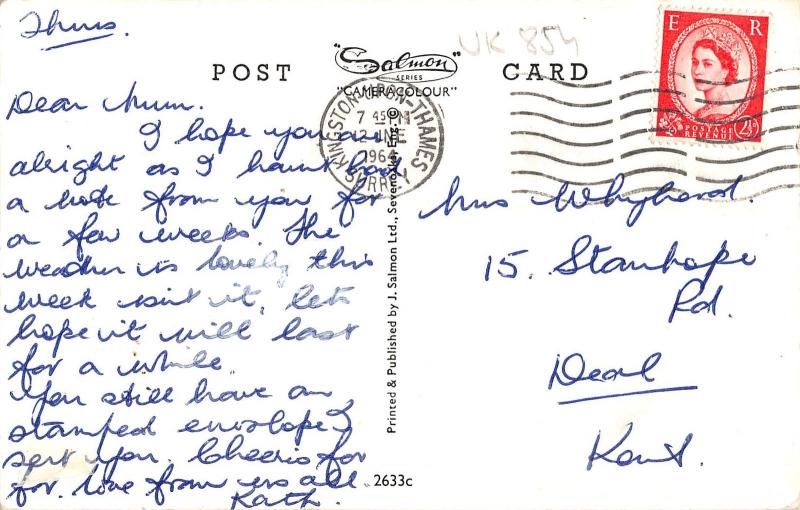 Thurs.
UK 854
POST CARD
"Salmon"
SERIES
"CAMERACOLOUR"
E R
POSTAGE
REVENUE
2½D
KINGSTON-UPON-THAMES
SURREY
7 45 PM
1964
Dear Mum.
I hope you are
alright as I havnt had
a note from you for
a few weeks. The
weather is lovely this
week isnt it, lets
hope it will last
for a while.
You still have an
stamped envelope I
sent you. Cheerio for
for. love from us all
Kath.
Mrs Whyhard.
15. Stanhope
Rd.
Deal
Kent.
Printed & Published by J. Salmon Ltd., Sevenoaks, Eng. ©
2633c